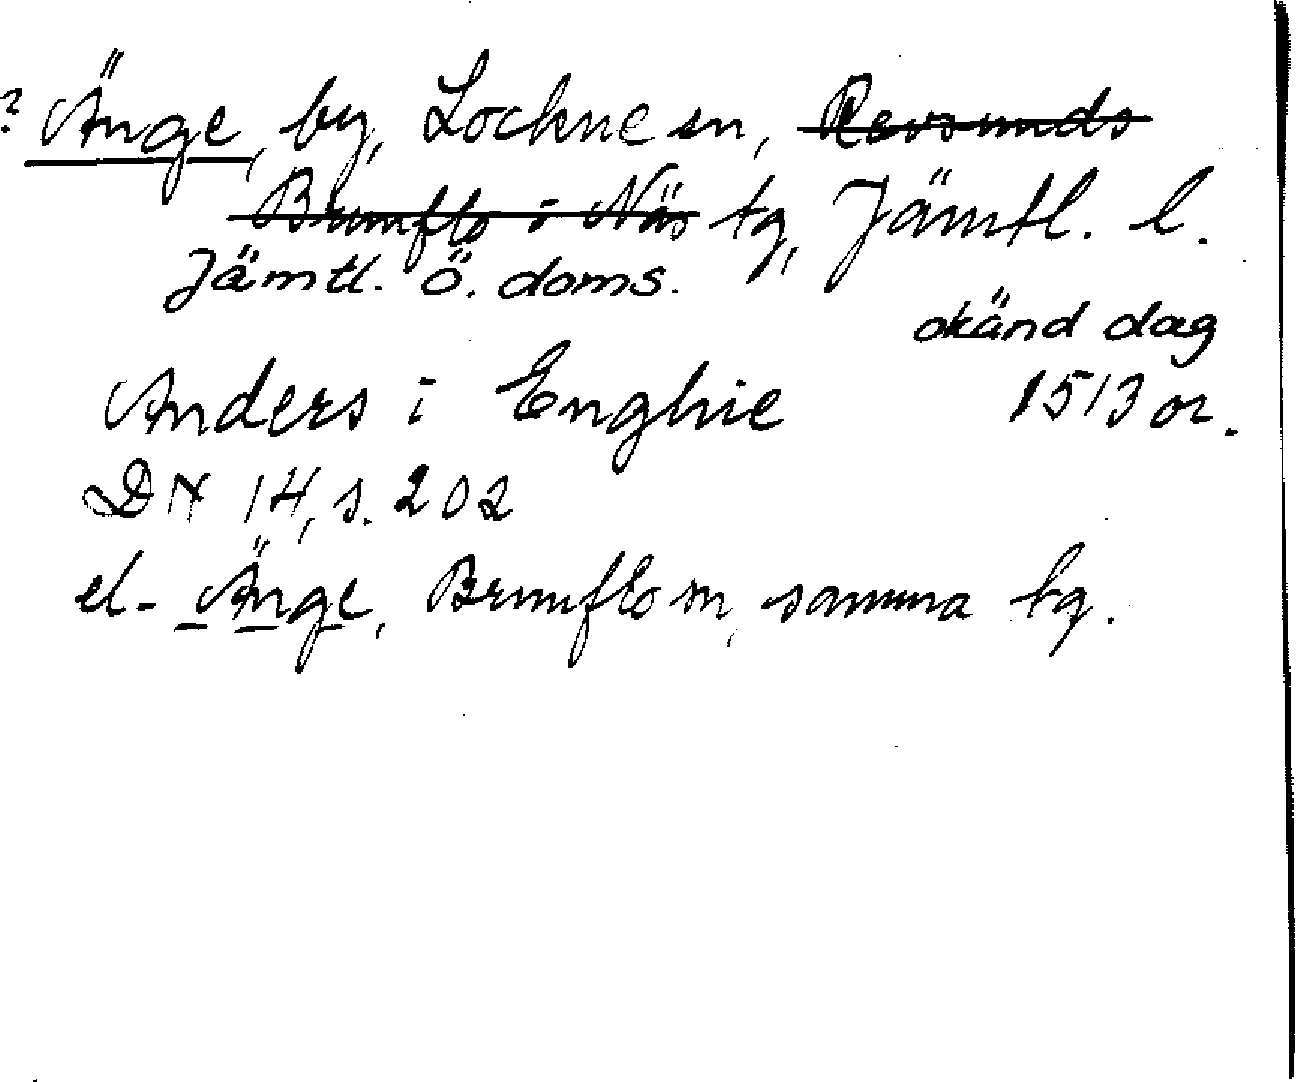 ? Änge, by, Lockne sn, Revsunds
Brunflo i Näs tg, Jämtl. l.
Jämtl. Ö. doms.
okänd dag
Anders i Enghie 1513 or.
DN 14, s. 202
el. Änge, Brunflo sn, samma tg.